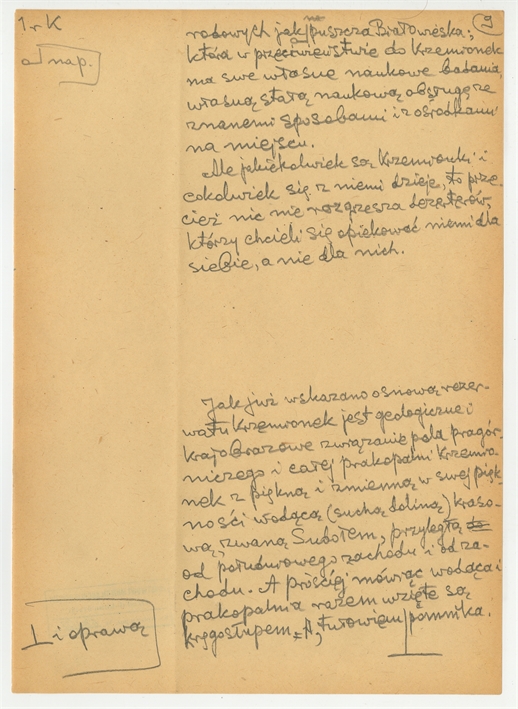 1. r K
9
nap.
rodowych jak puszcza Białowieska;
która w przeciwieństwie do Krzemionek
ma swe własne naukowe badania,
własną stałą naukową obsługę ze
znanemi sposobami i z ośrodkami
na miejscu.
Ale jakiekolwiek są Krzemionki i
cokolwiek się z niemi dzieje, to prze
cież nic nie rozgrzesza dezerterów,
którzy chcieli się opiekować niemi dla
siebie, a nie dla nich.
Jak już wskazano osnową rezer-
watu Krzemionek jest geologiczne i
krajobrazowe związanie pola pragór-
niczego i całej prakopalni Krzemio
nek z piękną i zmienną w swej pięk
ności wodącą (suchą doliną) kraso-
wą, zwaną Subołem, przyległą
od południowego zachodu i od za-
chodu. A prościej mówiąc wodąca i
prakopalnia razem wzięte są
kręgosłupem pomnika.
i oprawą